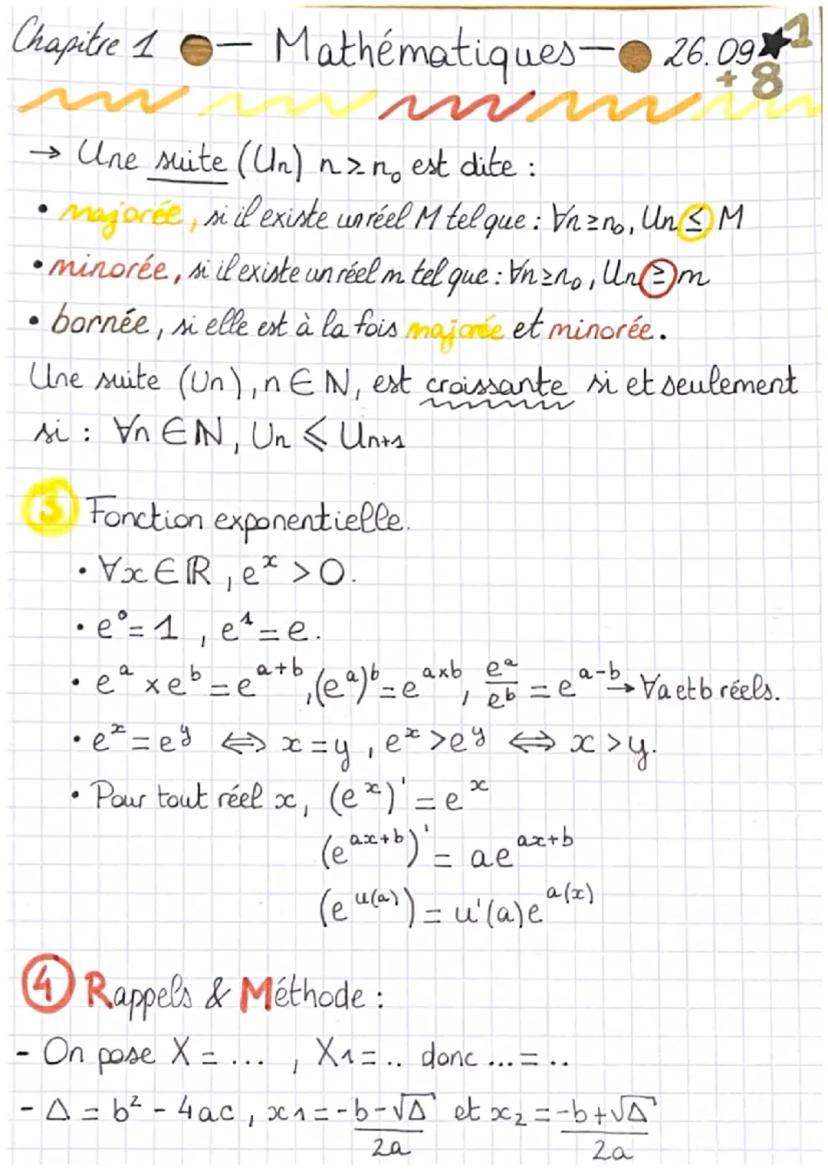 Chapitre 1 — Mathématiques — 26.09 ★ 1
+ 8
→ Une suite (Un) n≥n₀ est dite :
• majorée, si il existe un réel M tel que : ∀n≥n₀, Un ≤ M
• minorée, si il existe un réel m tel que : ∀n≥n₀, Un ≥ m
• bornée, si elle est à la fois majorée et minorée.
Une suite (Un), n ∈ N, est croissante si et seulement
si : ∀n ∈ ℕ, Un ⩽ Un+1
3 Fonction exponentielle.
• ∀x ∈ ℝ, eˣ > 0.
• e⁰ = 1, e¹ = e.
• e^a × e^b = e^(a+b), (e^a)^b = e^(a×b), e^a/e^b = e^(a-b) → ∀a et b réels.
• e^x = e^y ⇔ x = y, e^x > e^y ⇔ x > y.
• Pour tout réel x, (e^x)' = e^x
(e^(ax+b))' = ae^(ax+b)
(e^(u(a))) = u'(a)e^(a(x))
4 Rappels & Méthode :
- On pose X = ... , X1 = .. donc ... = ..
- Δ = b² - 4ac, x1 = (-b-√Δ)/2a et x₂ = (-b+√Δ)/2a